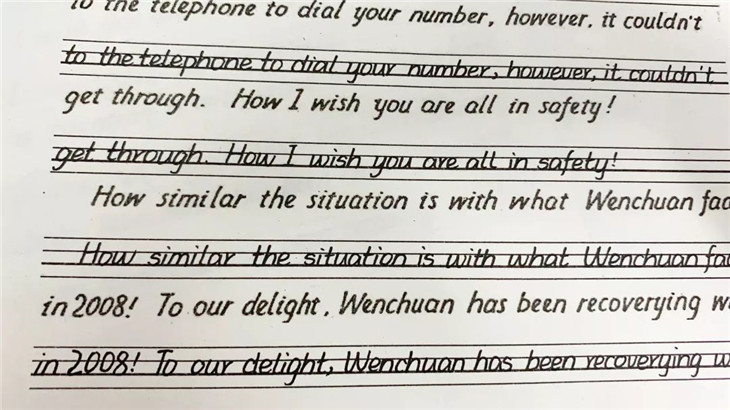 to the telephone to dial your number, however. it couldn't
to the telephone to dial your number, however, it couldn't
get through. How I wish you are all in safety!
get through. How I wish you are all in safety!
How similar the situation is with what Wenchuan fac
How similar the situation is with what Wenchuan fac
in 2008! To our delight, Wenchuan has been recoverying w
in 2008! To our delight, Wenchuan has been recoverying w